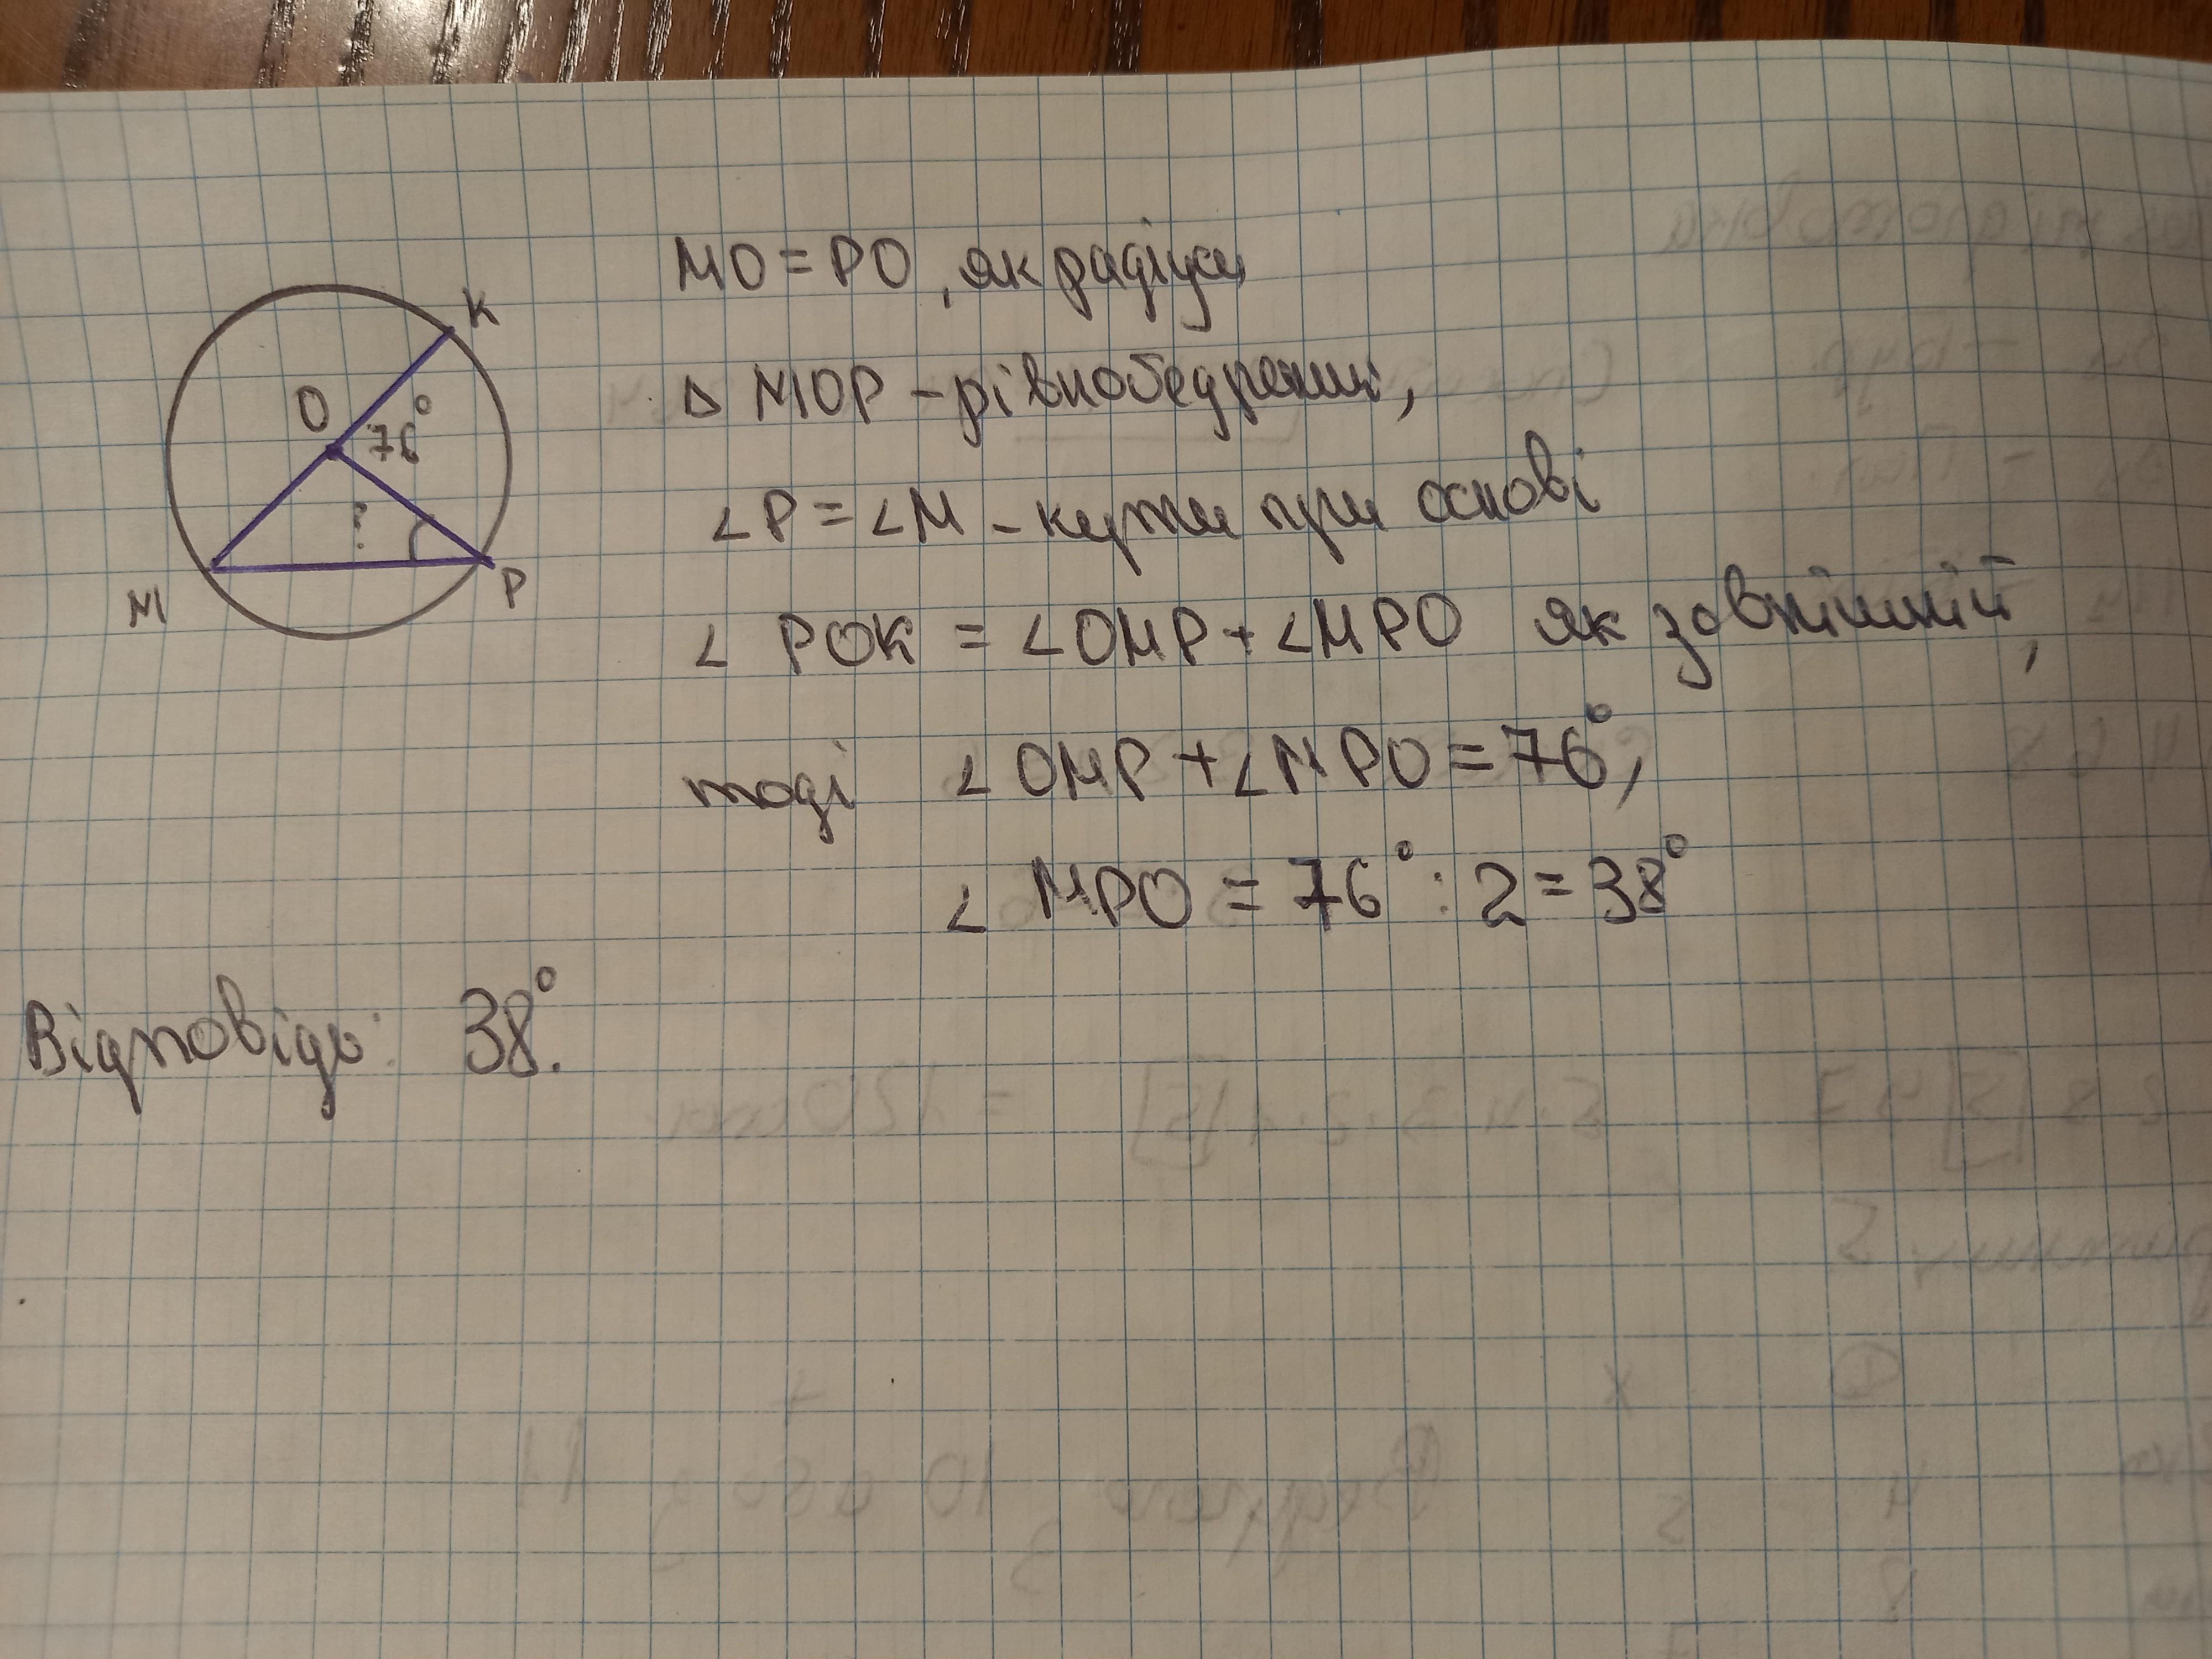 K
O
76°
?
M
P
MO = PO, як радіуси
Δ MOP – рівнобедрений,
∠P = ∠M – кути при основі
∠ POK = ∠OMP + ∠MPO як зовнішній,
тоді ∠OMP + ∠MPO = 76°,
∠ MPO = 76° : 2 = 38°
Відповідь: 38°.